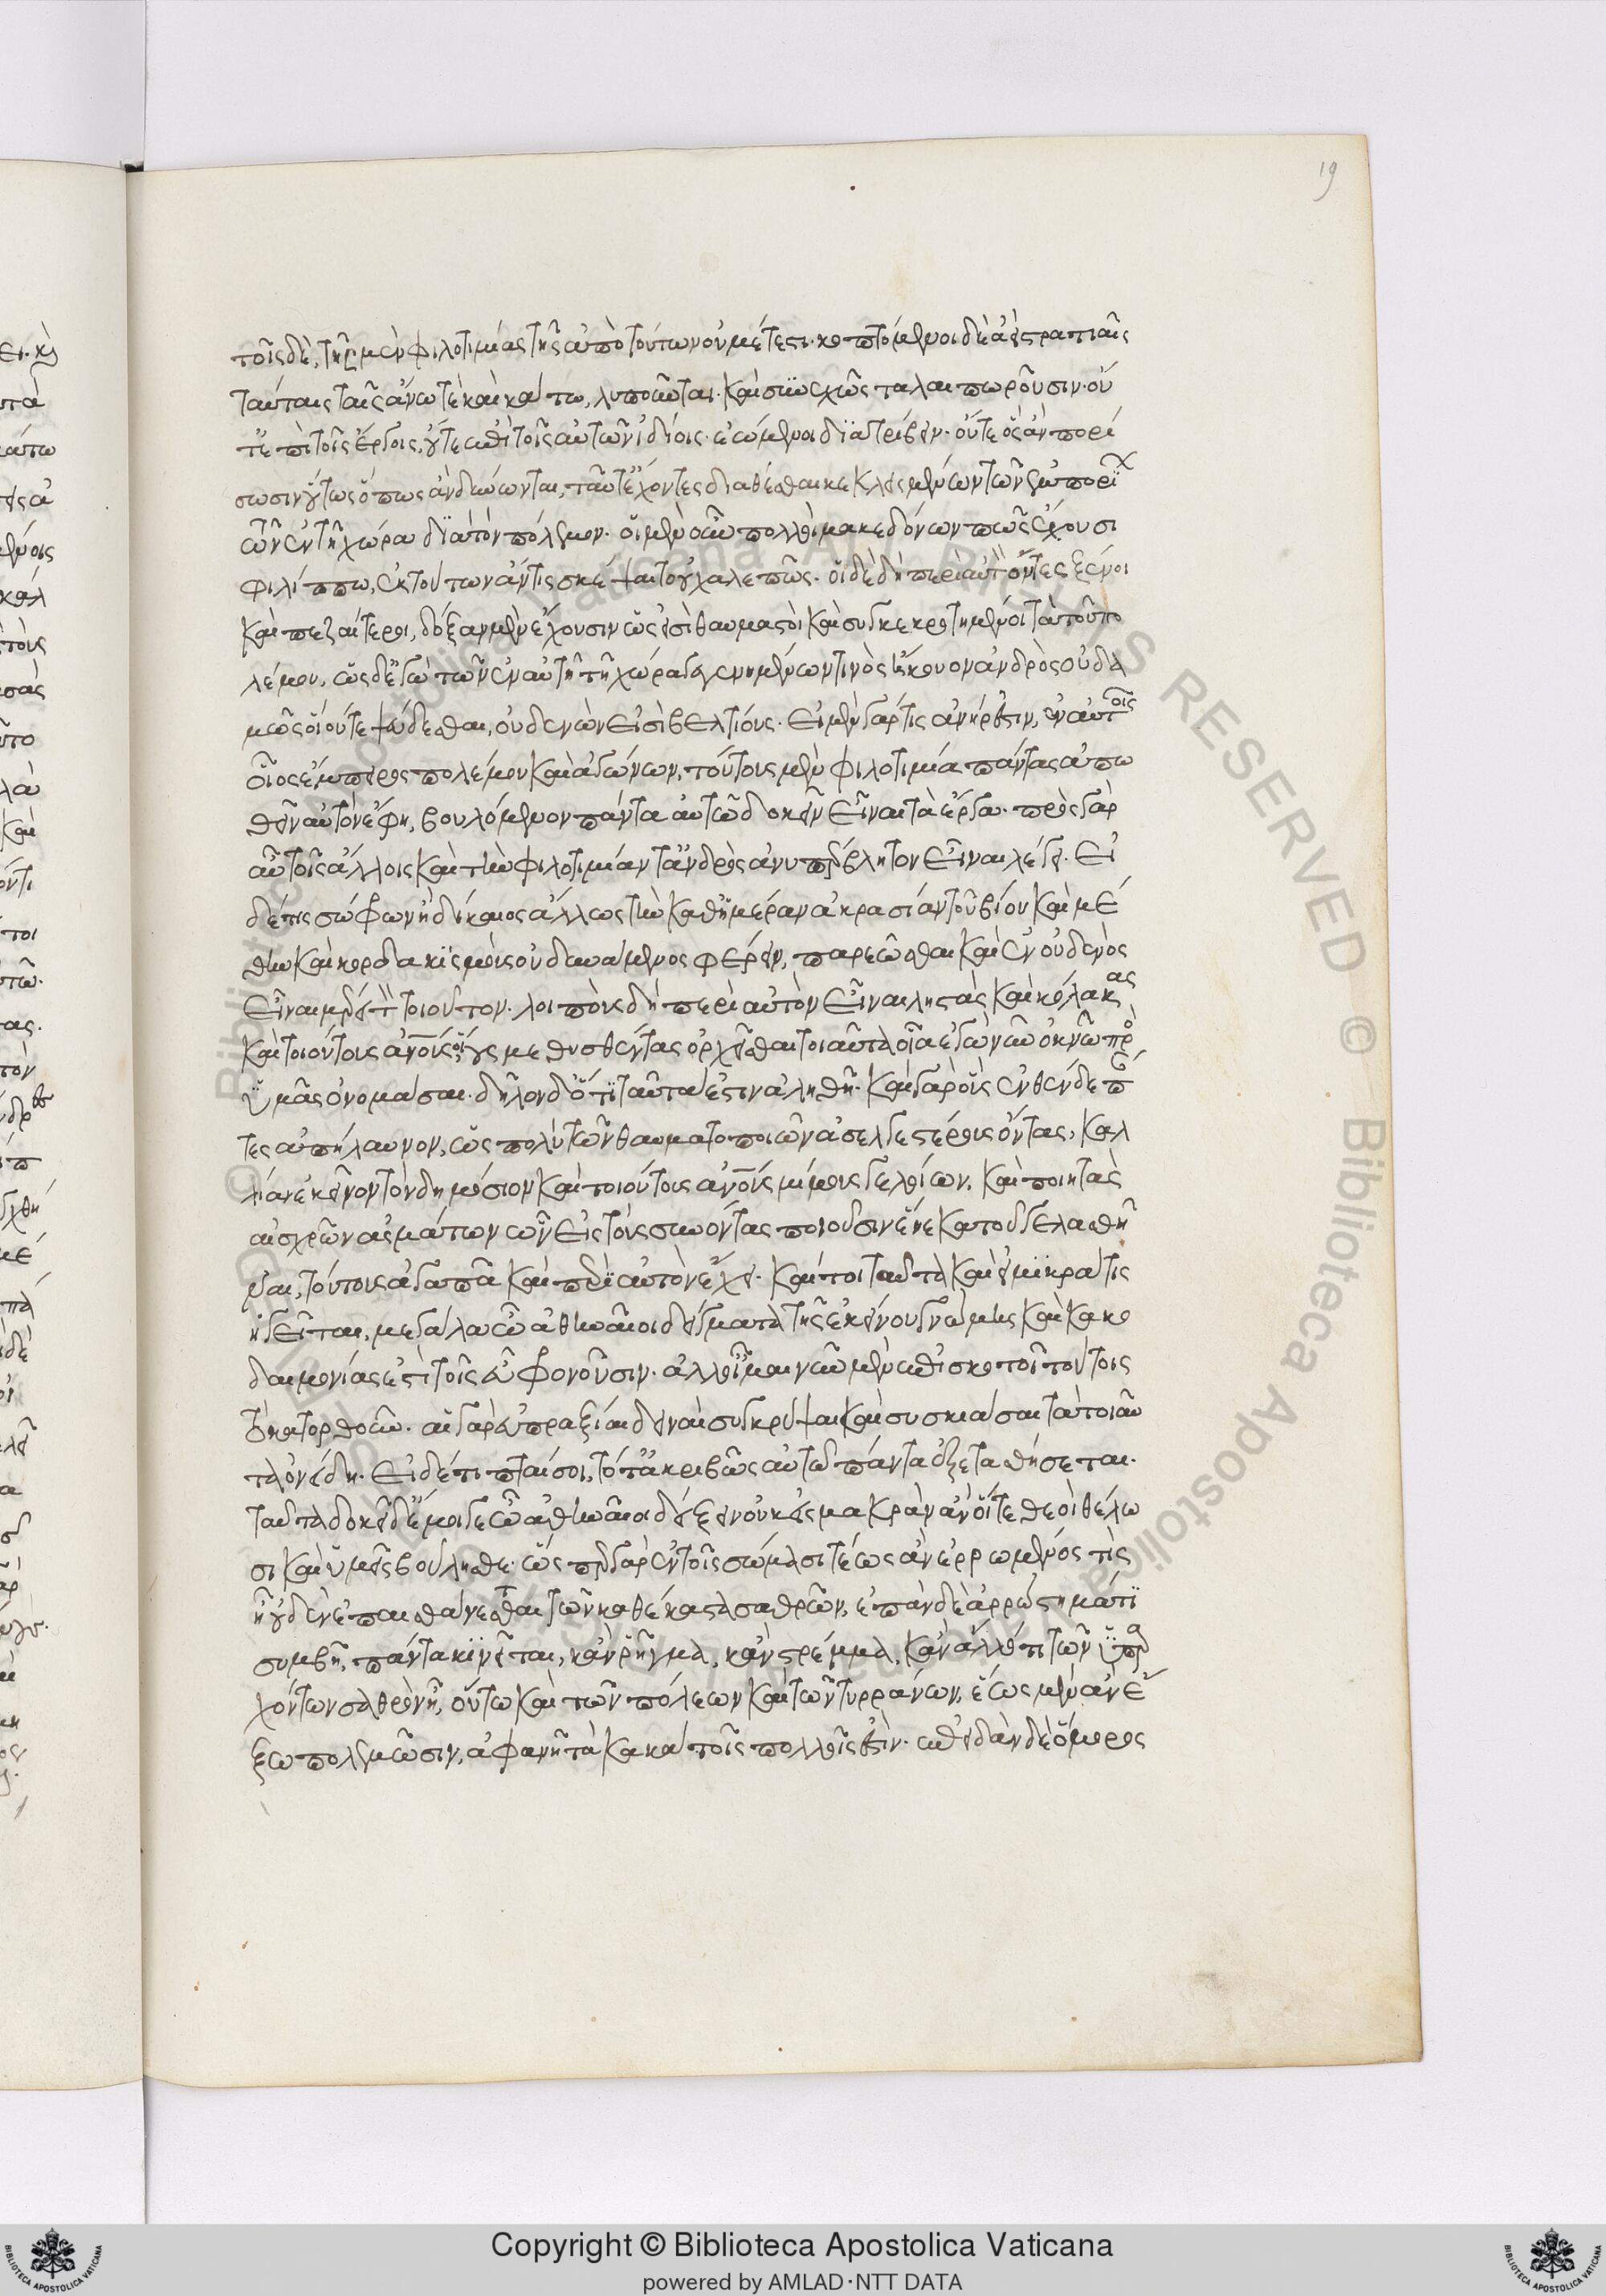 τοῖς δὲ, τῆς μὲν φιλοτιμίας τῆς ἀπὸ τούτων οὐ μέτεστι· κοπτόμενοι δὲ ἀεὶ στρατιαῖς
ταύταις ταῖς ἄνω τε καὶ κάτω, λυποῦνται· καὶ συνεχῶς ταλαιπωροῦσιν· οὔ
τ' ἐπὶ τοῖς ἔργοις, οὔτε ἐπὶ τοῖς αὑτῶν ἰδίοις· ἐώμενοι διατρίβειν· οὔτε ὅσ' ἂν πορί
σωσιν οὕτως ὅπως ἂν δύνωνται, ταῦτ' ἔχοντες διαθέσθαι κεκλεισμένων τῶν ἐμπορί
ων ἐν τῇ χώρα διὰ τὸν πόλεμον· οἱ μὲν οὖν πολλοὶ μακεδόνων πῶς ἔχουσι
φιλίππω, ἐκ τούτων ἄν τις σκέψαιτο οὐ χαλεπῶς· οἱ δὲ δὴ περὶ αὐτὸν ὄντες ξένοι
καὶ πεζαίτεροι, δόξαν μὲν ἔχουσιν ὡς εἰσὶ θαυμαστοὶ καὶ συγκεκροτημένοι τὰ τοῦ πο
λέμου, ὡς δ' ἐγὼ τῶν ἐν αὐτῇ τῇ χώρα γεγενημένων τινὸς ἤκουον ἀνδρὸς οὐδα
μῶς οἵου τε ψεύδεσθαι, οὐδένων εἰσὶ βελτίους· εἰ μὲν γάρ τις ἀνήρ ἐστιν, ἐν αὐτοῖς
οἷος ἔμπειρος πολέμου καὶ ἀγώνων, τούτους μὲν φιλοτιμία πάντας ἀπω
θεῖν αὐτὸν ἔφη, βουλόμενον πάντα αὑτοῦ δοκεῖν εἶναι τὰ ἔργα· πρὸς γὰρ
αὖ τοῖς ἄλλοις καὶ τὴν φιλοτιμίαν τἀνδρὸς ἀνυπέρβλητον εἶναι λέγει· εἰ
δέ τις σώφρων ἢ δίκαιος ἄλλως τὴν καθ' ἡμέραν ἀκρασίαν τοῦ βίου καὶ μέ
θην καὶ κορδακισμοὺς οὐ δυνάμενος φέρειν, παρεῶσθαι καὶ ἐν οὐδενὸς
εἶναι μέρει τὸν τοιοῦτον· λοιποὺς δὴ περὶ αὐτὸν εἶναι λῃστὰς καὶ κόλακας
καὶ τοιούτους ἀνους οἵους μεθυσθέντας ὀρχεῖσθαι τοιαῦτα οἷα ἐγὼ νῦν ὀκνῶ πρὸς
ὑμᾶς ὀνομάσαι· δῆλον δ' ὅτι ταῦτά ἐστιν ἀληθῆ· καὶ γὰρ οὓς ἐνθένδε πάν
τες ἀπήλαυνον, ὡς πολὺ τῶν θαυματοποιῶν ἀσελγεστέρους ὄντας, καλ
λίαν ἐκεῖνον τὸν δημόσιον καὶ τοιούτους ἀνους μίμους γελοίων, καὶ ποιητὰς
αἰσχρῶν ἀσμάτων ὧν εἰς τοὺς συνόντας ποιοῦσιν ἕνεκα τοῦ γελασθῆ
ναι, τούτους ἀγαπᾷ καὶ περὶ αὐτὸν ἔχει· καίτοι ταῦτα καὶ εἰ μικρά τις
ἡγεῖται, μεγάλα ὦ ἀθηναῖοι δείγματα τῆς ἐκείνου γνώμης καὶ κακο
δαιμονίας ἐστὶ τοῖς εὖ φρονοῦσιν· ἀλλ' οἶμαι νῦν μὲν ἐπισκοτεῖ τούτοις
τὸ κατορθοῦν· αἱ γὰρ εὐπραξίαι δειναὶ συγκρύψαι καὶ συσκιάσαι τὰ τοιαῦ
τα ὀνείδη· εἰ δέ τι πταίσοι, τότ' ἀκριβῶς αὐτοῦ πάντα ἐξετασθήσεται·
ταῦτα δοκεῖ δ' ἔμοιγε ὦ ἀθηναῖοι δείξειν οὐκ εἰς μακρὰν ἂν οἵ τε θεοὶ θέλω
σι καὶ ὑμεῖς βούλησθε· ὥσπερ γὰρ ἐν τοῖς σώμασι τέως ἂν ἐρρωμένος τις
ᾖ οὐδὲν ἐπαισθάνεται τῶν καθέκαστα σαθρῶν, ἐπὰν δὲ ἀρρώστημά τι
συμβῇ, πάντα κινεῖται, κἂν ῥῆγμα, κἂν στρέμμα, κἂν ἄλλό τι τῶν ὑπαρ
χόντων σαθρὸν ᾖ, οὕτω καὶ τῶν πόλεων καὶ τῶν τυράννων, ἕως μὲν ἂν ἔ
ξω πολεμῶσιν, ἀφανῆ τὰ κακὰ τοῖς πολλοῖς ἐστίν· ἐπειδὰν δὲ ὅμορος
19
Copyright © Biblioteca Apostolica Vaticana
powered by AMLAD·NTT DATA